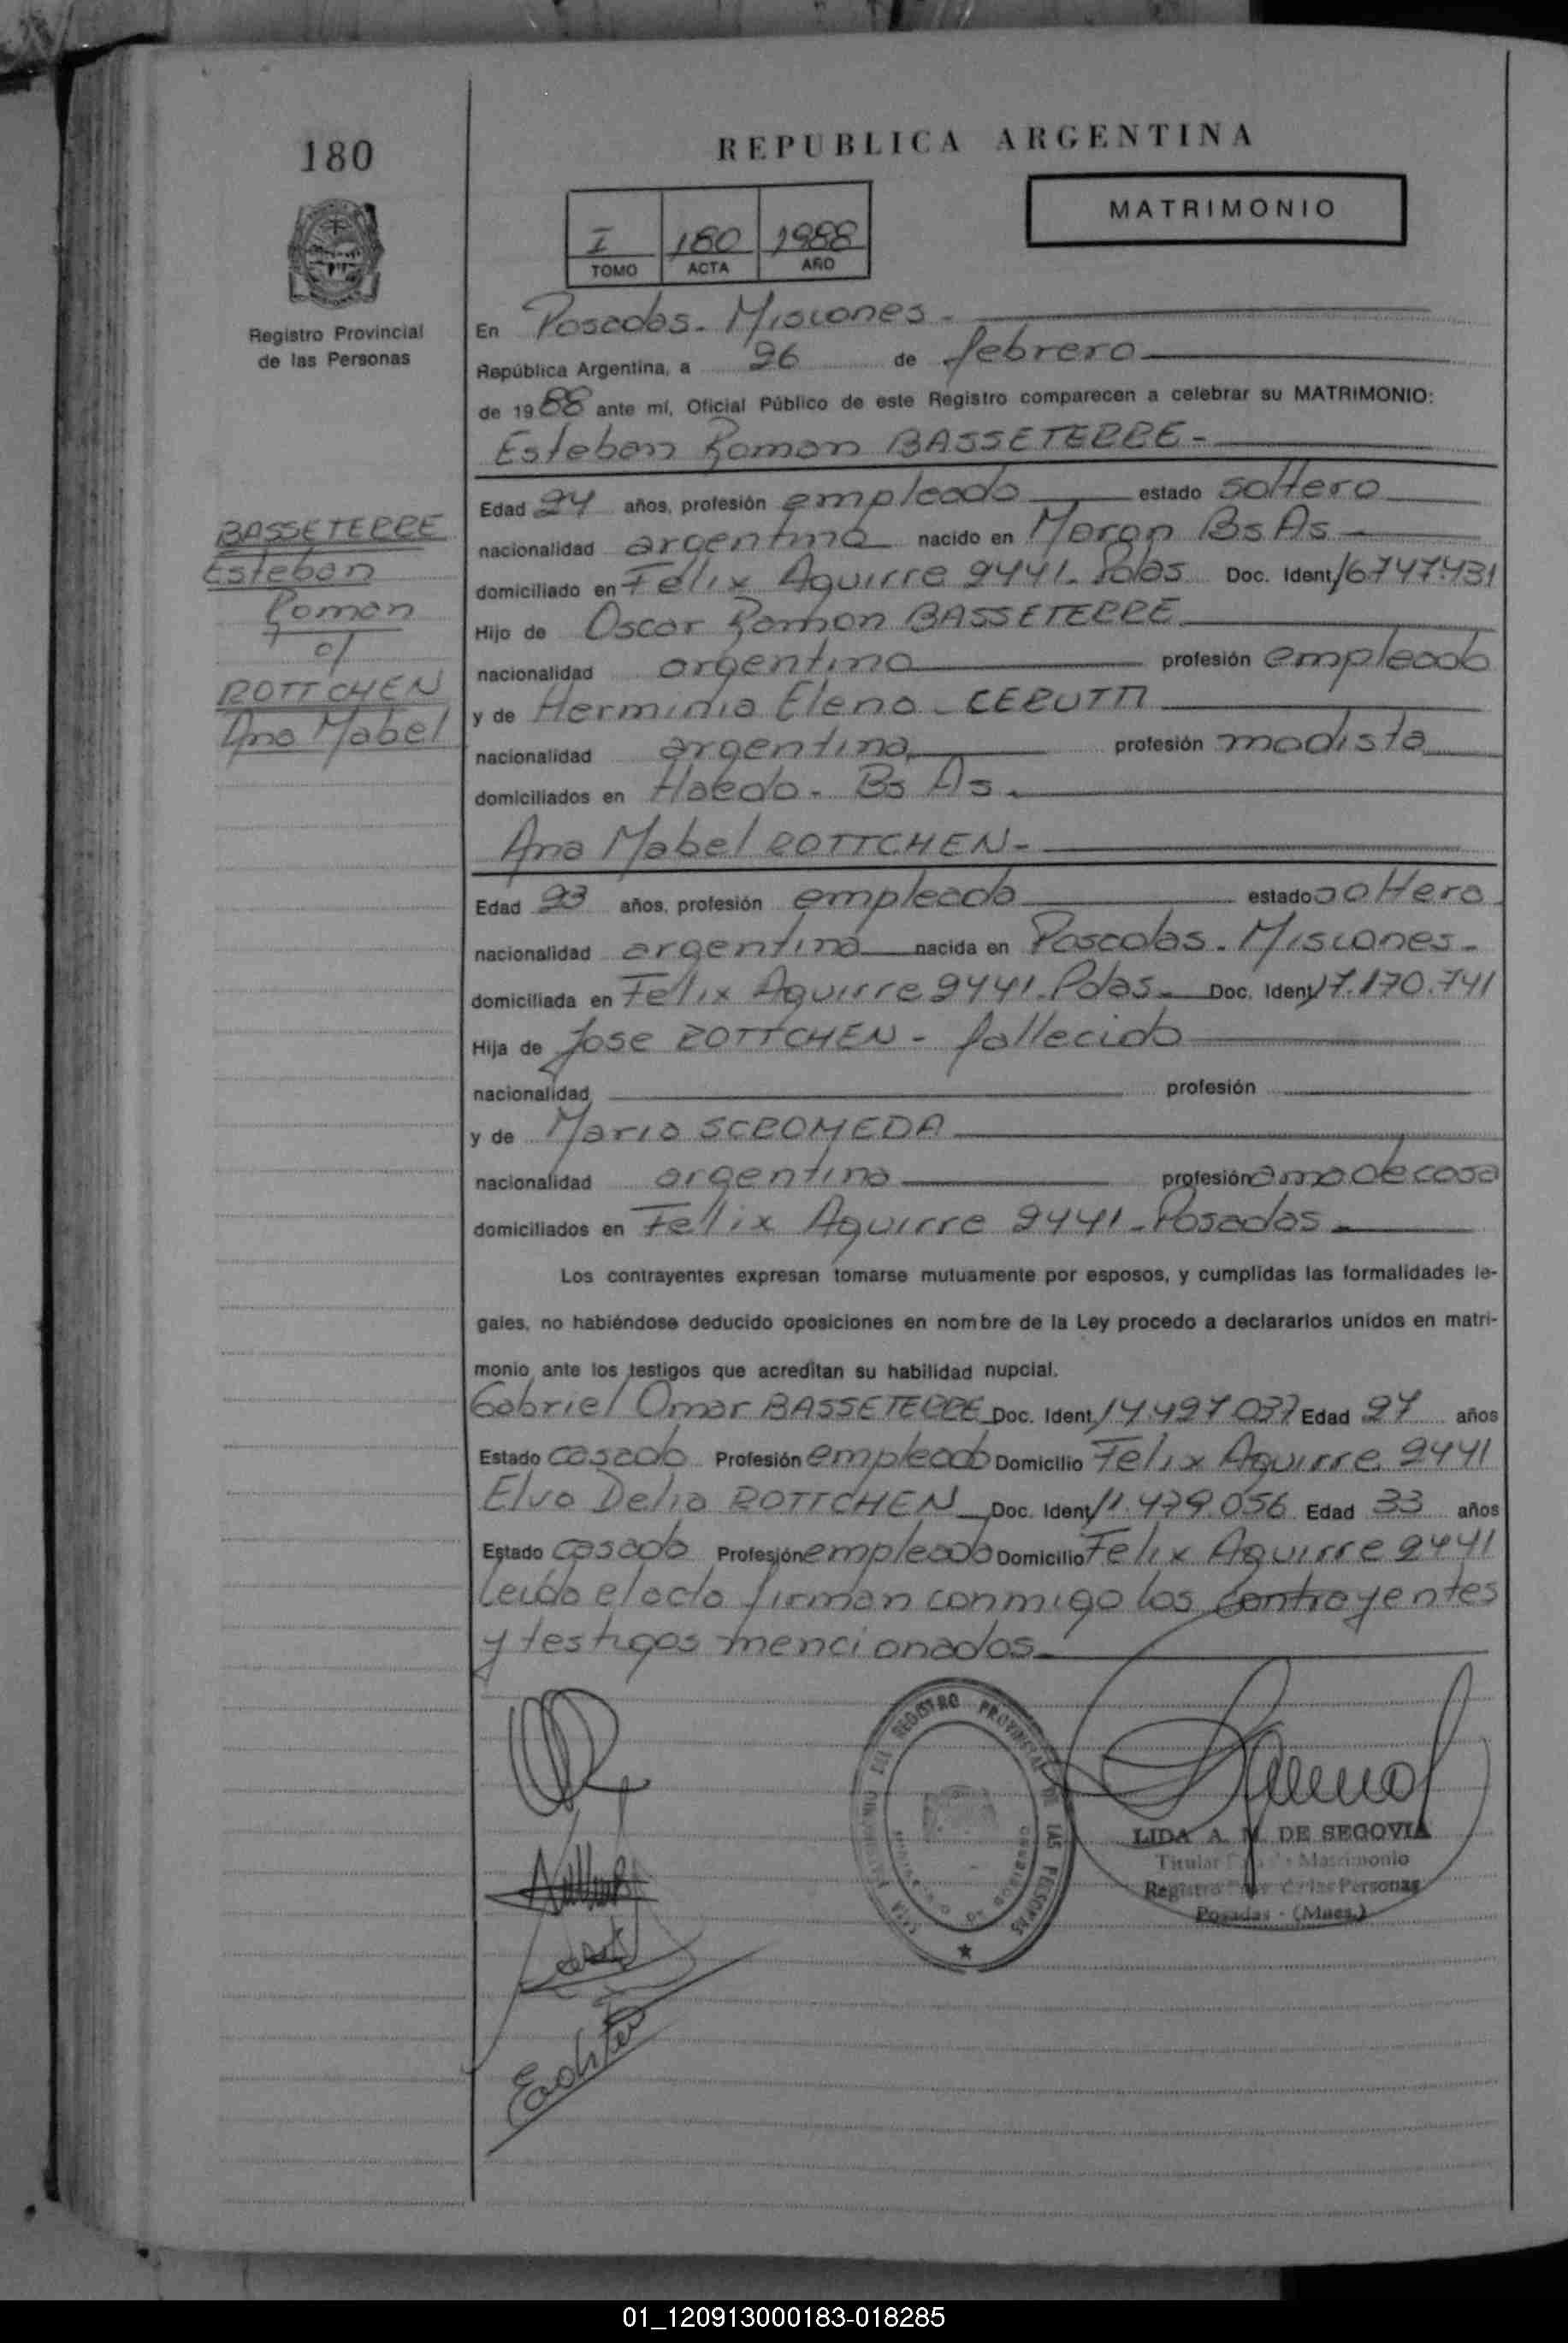 180
REPUBLICA ARGENTINA
MATRIMONIO
I 180 1988
TOMO ACTA AÑO
Registro Provincial
de las Personas
En Posadas - Misiones -
República Argentina, a 26 de febrero
de 1988 ante mí, Oficial Público de este Registro comparecen a celebrar su MATRIMONIO:
Esteban Ramon BASSETERRE -
Edad 24 años, profesión empleado estado soltero
nacionalidad argentina nacido en Moron Bs As
domiciliado en Felix Aguirre 2441 - Pdas Doc. Ident. 16.747.431
Hijo de Oscar Ramon BASSETERRE
nacionalidad argentina profesión empleado
y de Herminia Elena - CERUTTI
nacionalidad argentina profesión modista
domiciliados en Haedo - Bs As -
BASSETERRE
Esteban
Ramon
c/
ROTTCHEN
Ana Mabel
Ana Mabel ROTTCHEN -
Edad 23 años, profesión empleada estado soltera
nacionalidad argentina nacida en Posadas - Misiones -
domiciliada en Felix Aguirre 2441 - Pdas - Doc. Ident. 17.170.741
Hija de Jose ROTTCHEN - fallecido
nacionalidad profesión
y de Maria SCROMEDA
nacionalidad argentina profesión ama de casa
domiciliados en Felix Aguirre 2441 - Posadas -
Los contrayentes expresan tomarse mutuamente por esposos, y cumplidas las formalidades le-
gales, no habiéndose deducido oposiciones en nombre de la Ley procedo a declararlos unidos en matri-
monio ante los testigos que acreditan su habilidad nupcial.
Gabriel Omar BASSETERRE Doc. Ident. 14.497.037 Edad 27 años
Estado casado Profesión empleado Domicilio Felix Aguirre 2441
Elva Delia ROTTCHEN Doc. Ident. 11.479.056 Edad 33 años
Estado casada Profesión empleada Domicilio Felix Aguirre 2441
Leida el acta firman conmigo los contrayentes
y testigos mencionados -
REGISTRO PROVINCIAL DE LAS PERSONAS
LIDA A. M. DE SEGOVIA
Titular Matrimonio
Registro de las Personas
Posadas - (Mnes.)
01_120913000183-018285